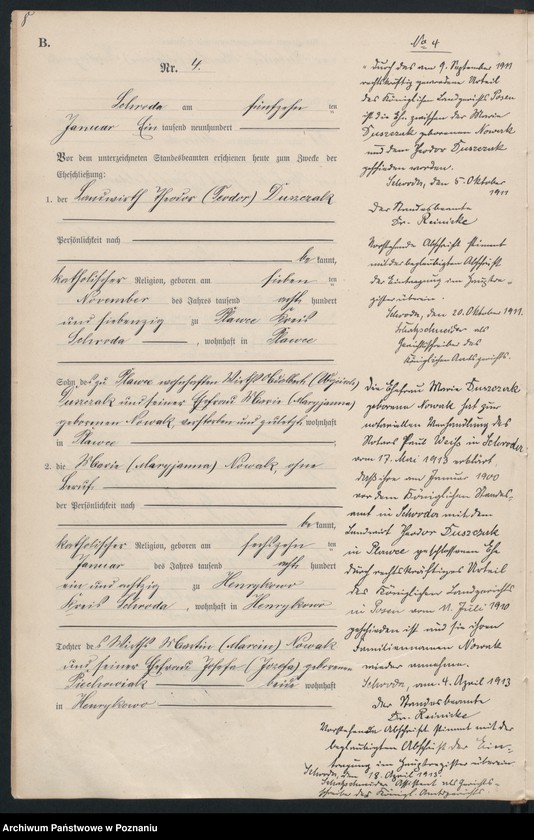 B.
Nr. 4.
Schroda am fünfzehn ten
Januar Ein tausend neunhundert
Vor dem unterzeichneten Standesbeamten erschienen heute zum Zwecke der
Eheschließung:
1. der Landwirth Theodor (Teodor) Duszczak
Persönlichkeit nach
be kannt,
katholischer Religion, geboren am sieben ten
November des Jahres tausend acht hundert
und siebenzig zu Pławce Kreis
Schroda, wohnhaft in Pławce
Sohn des zu Pławce wohnhaften Wirths
Duszczak und seiner Ehefrau Marie (Maryjanna)
geborenen Nowak, verstorben und zuletzt wohnhaft
in Pławce
2. die Marie (Maryjanna) Nowak, ohne
Beruf
der Persönlichkeit nach
be kannt,
katholischer Religion, geboren am sechszehn ten
Januar des Jahres tausend acht hundert
ein und achtzig zu Henrykowo
Kreis Schroda, wohnhaft in Henrykowo
Tochter des Wirths Martin (Marcin) Nowak
und seiner Ehefrau Josefa (Jozefa) geborenen
Piechowiak beide wohnhaft
in Henrykowo
No 4
"Durch das am 9. September 1911
rechtskräftig gewordene Urteil
des Königlichen Landgerichts Posen
ist die Ehe zwischen der Marie
Duszczak geborenen Nowak
und dem Theodor Duszczak
geschieden worden.
Schroda, den 5. Oktober
1911
Der Standesbeamte
Dr. Reinicke
Vorstehende Abschrift stimmt
mit der beglaubigten Abschrift
der Eintragung im Hauptre-
gister überein.
Schroda, den 20. Oktober 1911.
als
Gerichtsschreiber des
Königlichen Amtsgerichts.
Die Ehefrau Marie Duszczak
geborene Nowak hat zur
notariellen Verhandlung des
Notars Paul Weiß in Schroda
vom 17. Mai 1913 erklärt,
daß ihre am Januar 1900
vor dem Königlichen Standes-
amt in Schroda mit dem
Landwirt Theodor Duszczak
in Pławce geschlossene Ehe
durch rechtskräftiges Urteil
des Königlichen Landgerichts
in Posen vom 11. Juli 1910
geschieden ist und sie ihren
Familiennamen Nowak
wieder annehme.
Schroda, am 4. April 1913
Der Standesbeamte
Dr. Reinicke
Vorstehende Abschrift stimmt mit der
beglaubigten Abschrift der Ein-
tragung im Hauptregister überein.
Schroda, den 18. April 1913.
Assistent als Gerichts-
schreiber des Königl. Amtsgerichts
Archiwum Państwowe w Poznaniu